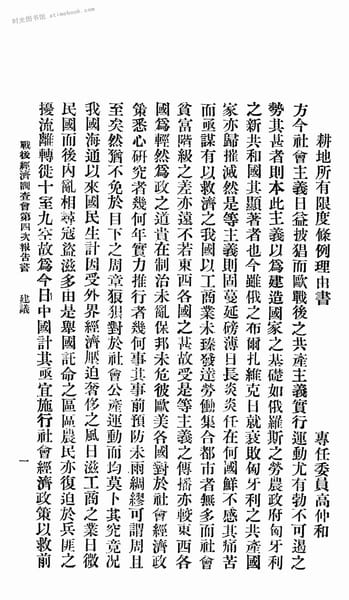 时光图书馆 atimebook.com
耕地所有限度條例理由書
專任委員高仲和
方今社會主義日益披猖而歐戰後之共產主義實行運動尤有勃不可遏之
勢其甚者則本此主義以爲建造國家之基礎如俄羅斯之勞農政府匈牙利
之新共和國其顯著者也今雖俄之布爾扎維克日就衰敗匈牙利之共產國
家亦歸摧滅然是等主義則固蔓延磅薄日長炎炎任在何國鮮不感其痛苦
而亟謀有以救濟之我國以工商業未臻發達勞働集合都市者無多而社會
貧富階級之差亦遠不若東西各國之甚故受是等主義之傳播亦較東西各
國爲輕然爲政之道貴在制治未亂保邦未危彼歐美各國對於社會經濟政
策悉心研究者幾何年實力推行者幾何事其事前預防未雨綢繆可謂周且
至矣然猶不免於目下之周章狼狽對於社會公產運動而均莫卜其究竟况
我國海通以來國民生計因受外界經濟壓迫奢侈之風日滋工商之業日微
民國而後內亂相尋寇盜滋多由是舉國託命之區區農民亦復迫於兵匪之
擾流離轉徙十至九空故爲今日中國計其亟宜施行社會經濟政策以救前
戰後經濟調查會第四次報告書 建議 一